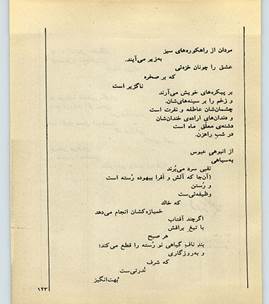 مردان از راهکوره‌های سبز
به‌زیر می‌آیند.
عشق را چونان خزه‌ئی
که بر صخره
ناگزیر است
بر پیکره‌های خویش می‌آرند
و زخم را بر سینه‌های‌شان.
چشمان‌شان عاطفه و نفرت است
و دندان‌های اراده‌ی خندان‌شان
دشنه‌ی معلّق ماه است
در شب راهزن.
از انبوهی عبوس
به‌سیاهی
نقبی سرد می‌بُرند
(آن‌جا که آلش و افرا بیهوده رُسته است
و رُستن
وظیفه‌ئی‌ست
که خاک
خمیازه‌کشان انجام می‌دهد
اگرچند آفتاب
با تیغ براقش
هر صبح
بند ناف گیاهی نو رُسته را قطع می‌کند)
و به‌روزگاری
که شرف
نُدرتی‌ست
بُهت‌انگیز
۱۲۳